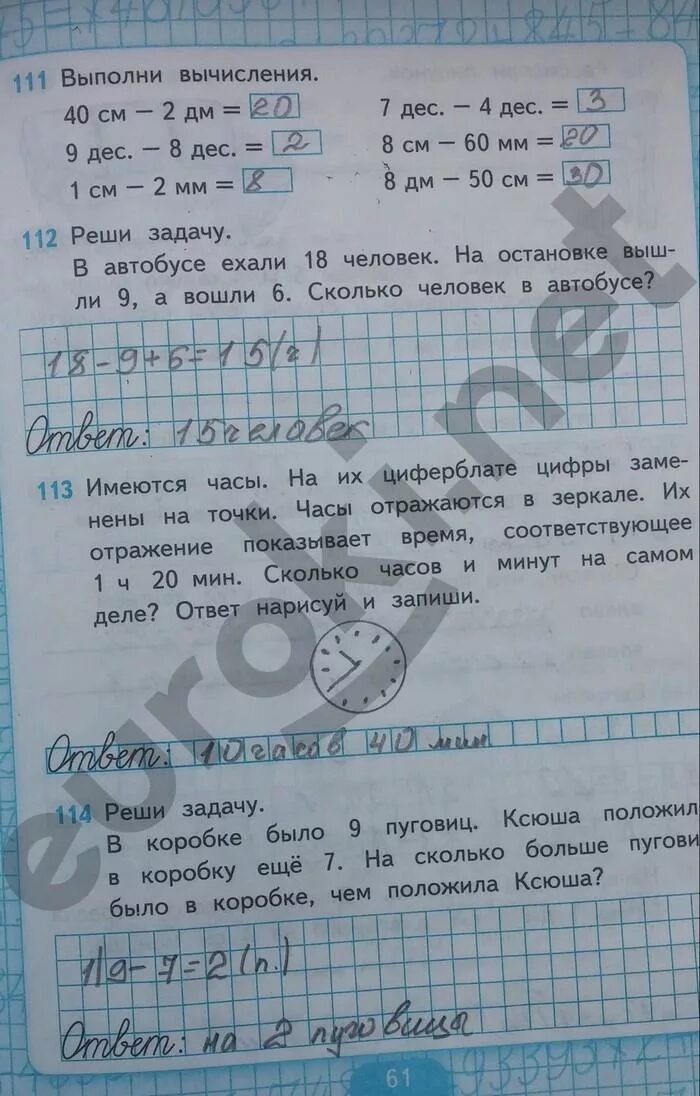 111 Выполни вычисления.
40 см − 2 дм = 20
7 дес. − 4 дес. = 3
9 дес. − 8 дес. = 2
8 см − 60 мм = 20
1 см − 2 мм = 8
8 дм − 50 см = 30
112 Реши задачу.
В автобусе ехали 18 человек. На остановке выш-
ли 9, а вошли 6. Сколько человек в автобусе?
18 − 9 + 6 = 15 (ч)
Ответ: 15 человек
113 Имеются часы. На их циферблате цифры заме-
нены на точки. Часы отражаются в зеркале. Их
отражение показывает время, соответствующее
1 ч 20 мин. Сколько часов и минут на самом
деле? Ответ нарисуй и запиши.
Ответ: 10 часов 40 мин
114 Реши задачу.
В коробке было 9 пуговиц. Ксюша положил
в коробку ещё 7. На сколько больше пугови
было в коробке, чем положила Ксюша?
1) 9 − 7 = 2 (п.)
Ответ: на 2 пуговицы
61
euroki.net